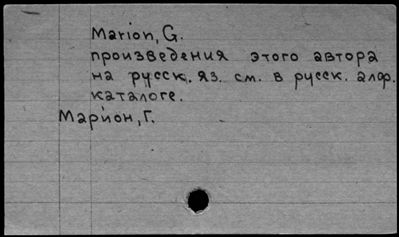 Marion, G.
произведения этого автора
на русск. яз. см. в русск. алф.
каталоге.
Марион, Г.